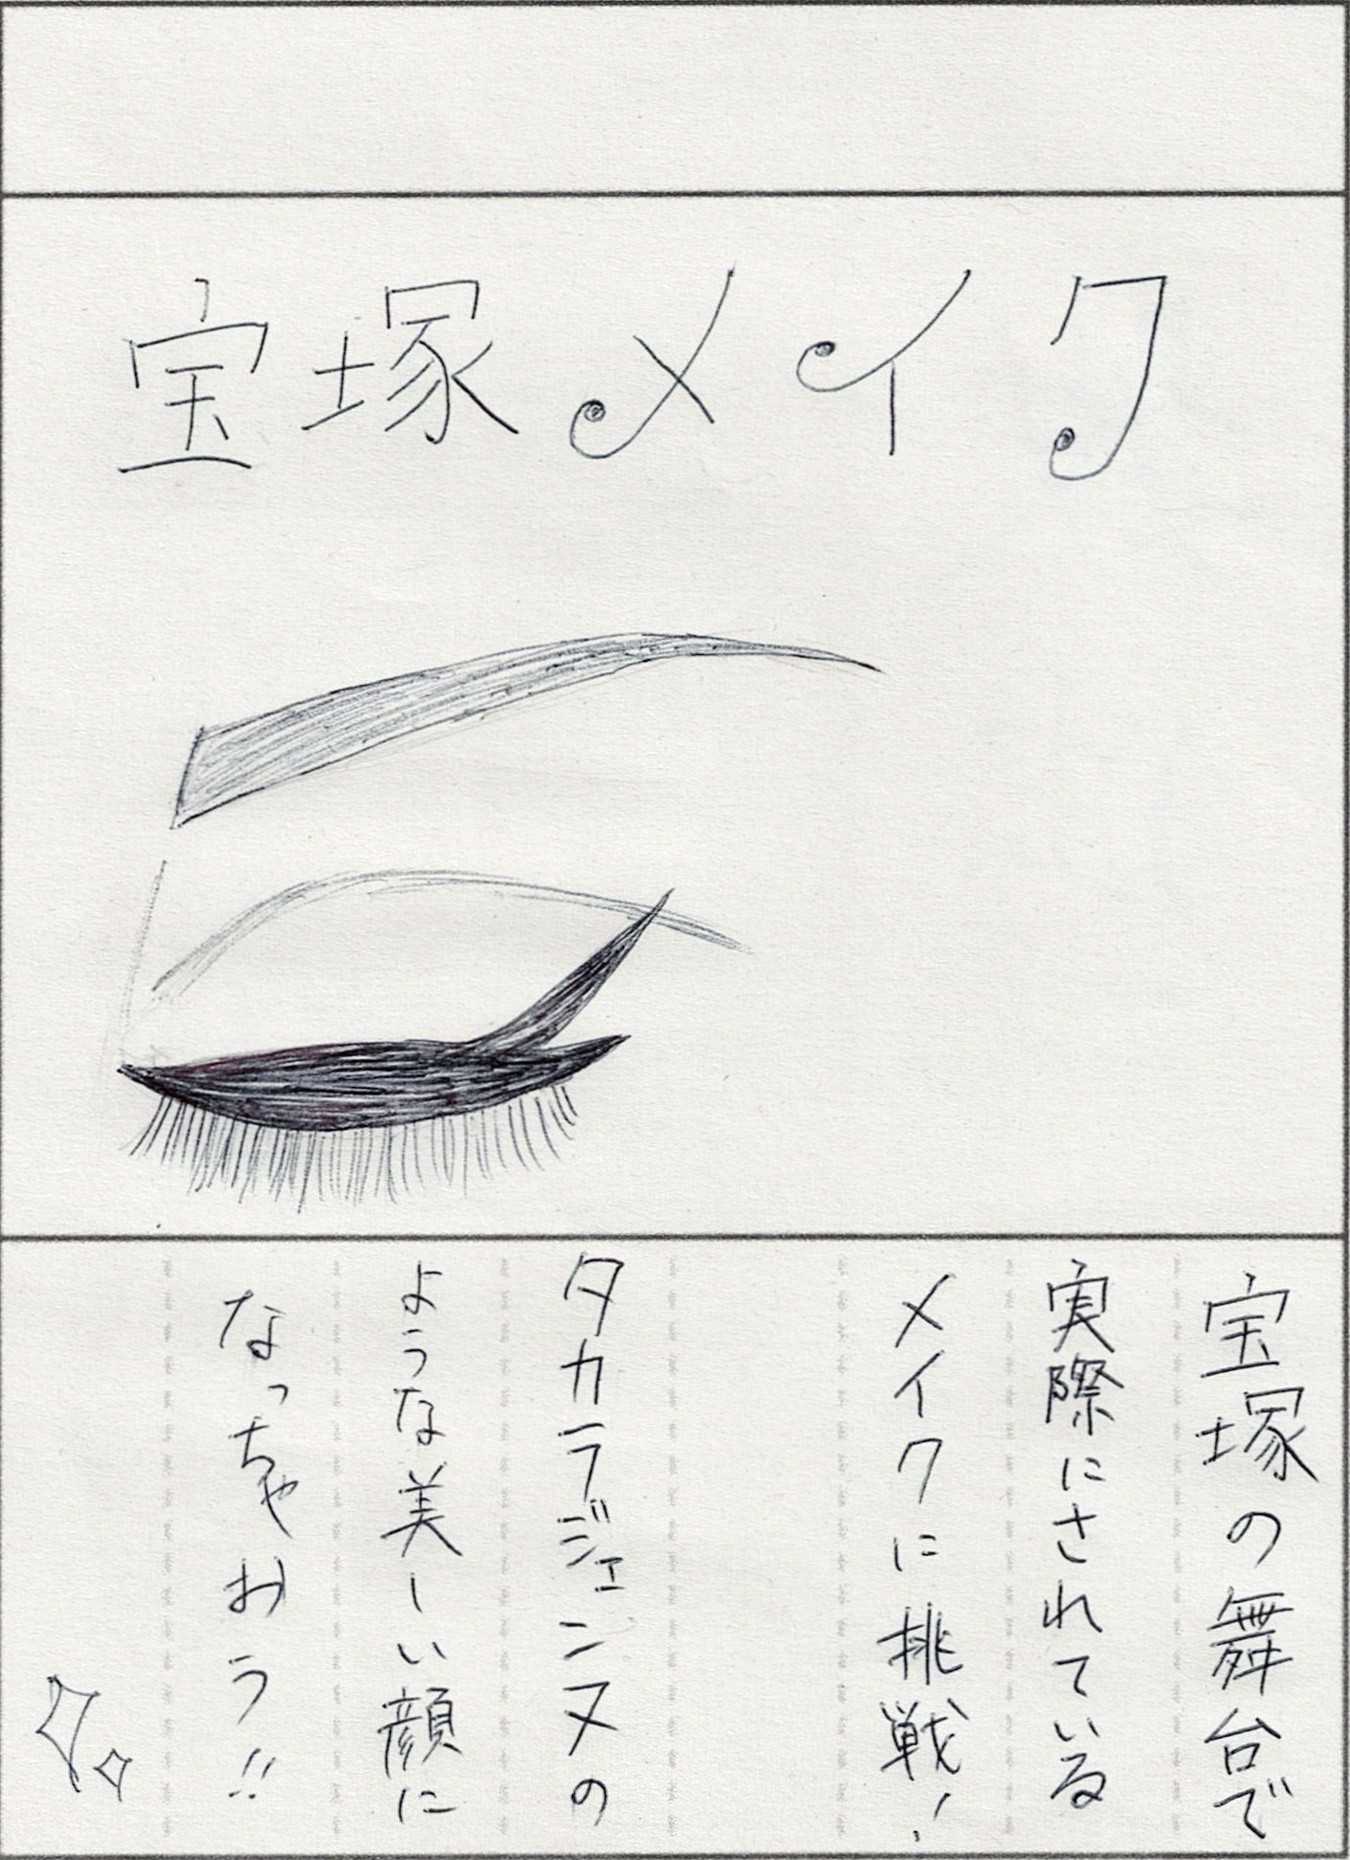 宝塚メイク
宝塚の舞台で
実際にされている
メイクに挑戦！
タカラジェンヌの
ような美しい顔に
なっちゃおう!!